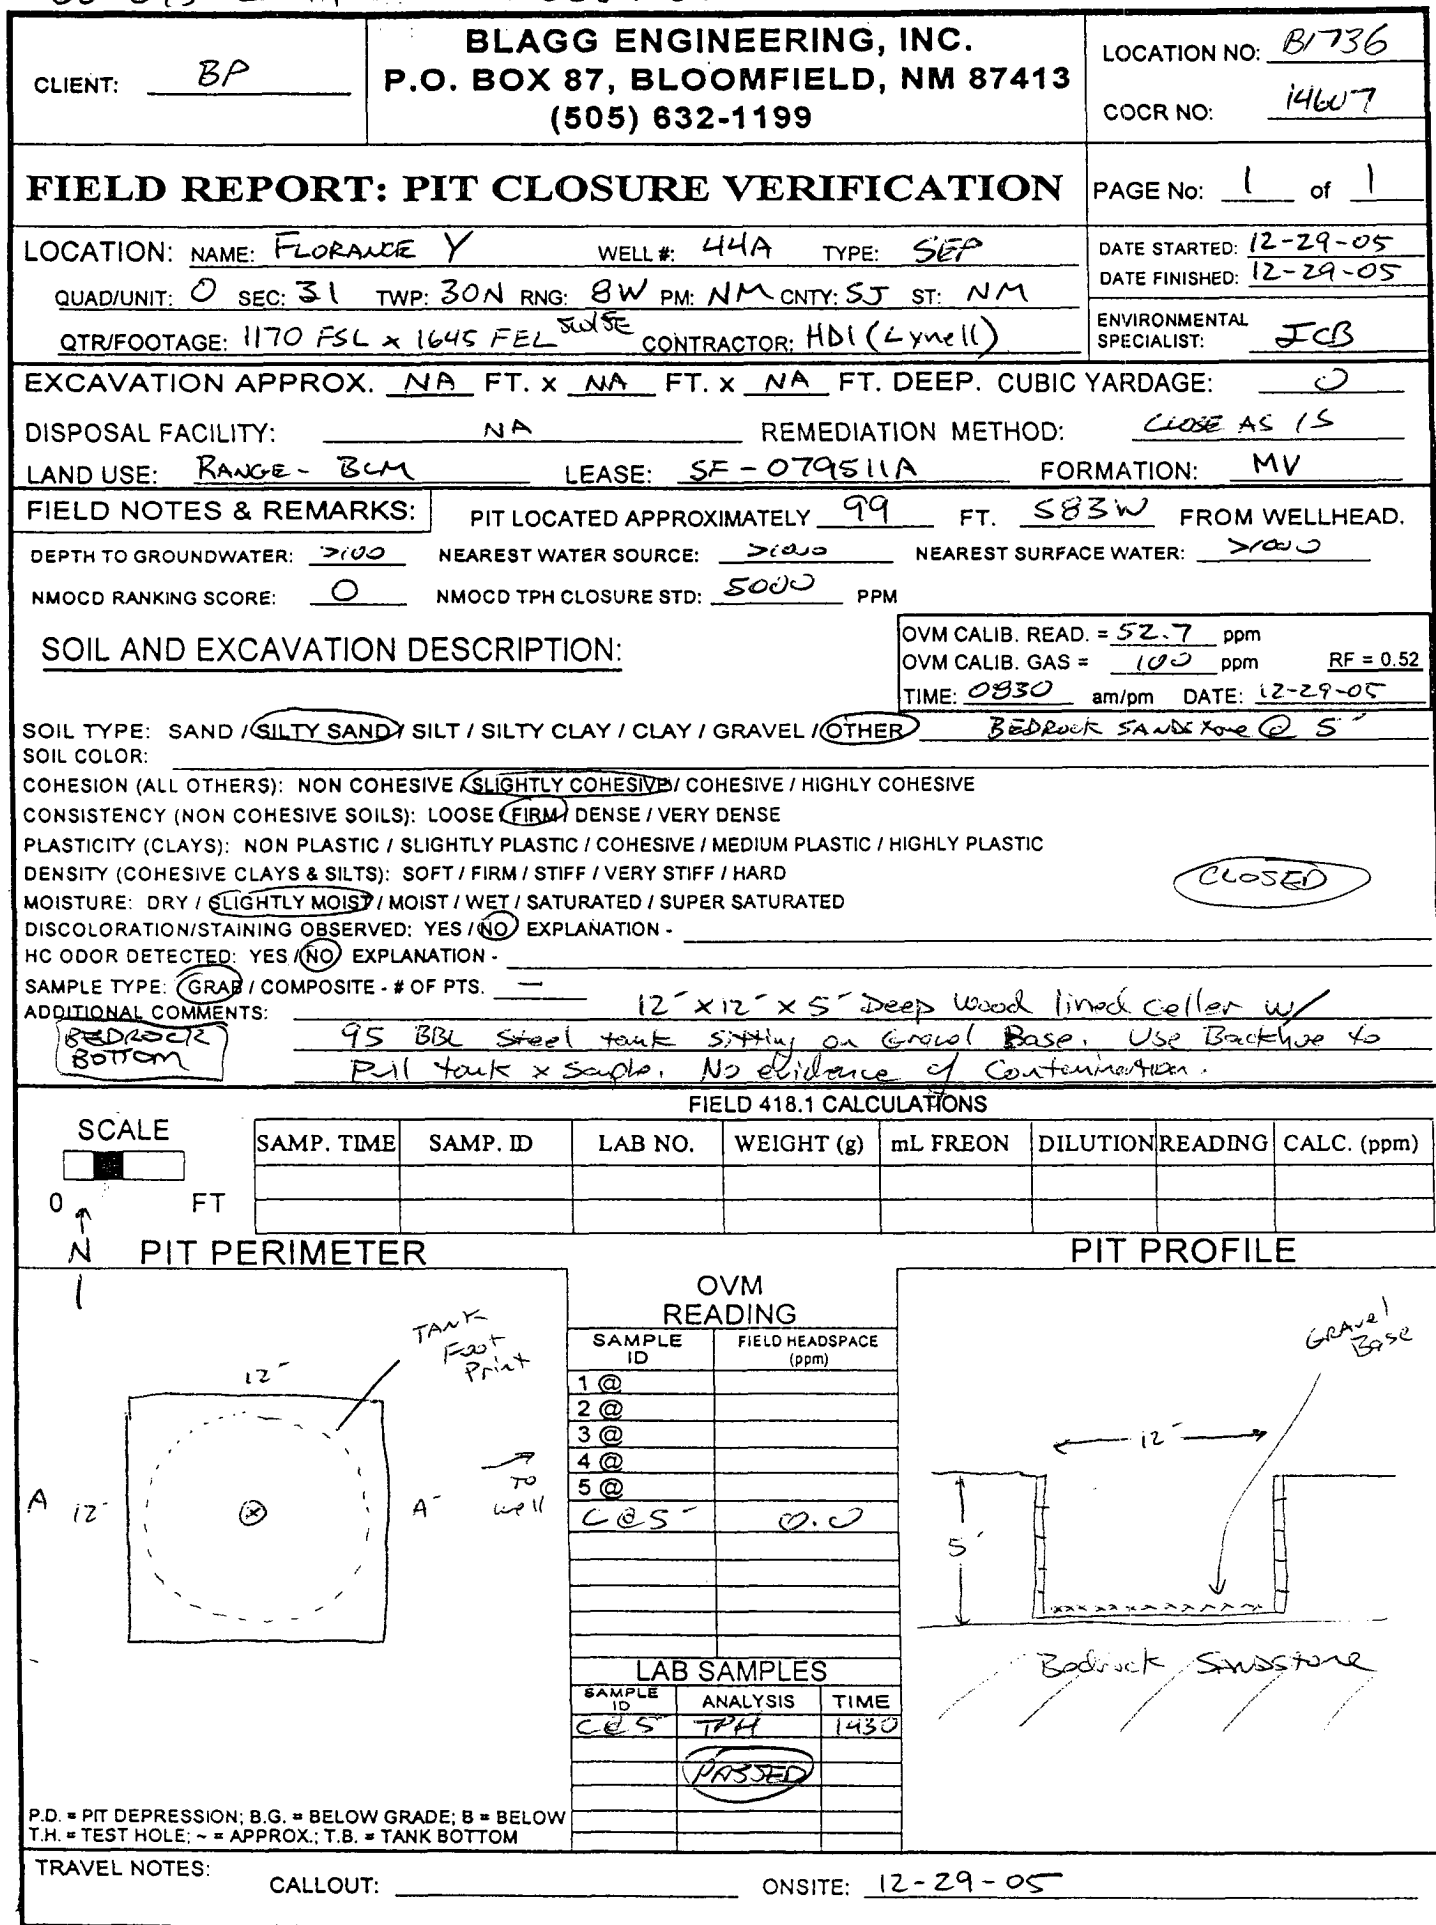 CLIENT: BP
BLAGG ENGINEERING, INC.
P.O. BOX 87, BLOOMFIELD, NM 87413
(505) 632-1199
LOCATION NO: B1736
COCR NO: 14607
FIELD REPORT: PIT CLOSURE VERIFICATION
PAGE No: 1 of 1
LOCATION: NAME: FLORANCE Y WELL #: 44A TYPE: SEP
QUAD/UNIT: O SEC: 31 TWP: 30N RNG: 8W PM: NM CNTY: SJ ST: NM
QTR/FOOTAGE: 1170 FSL x 1645 FEL SW/SE CONTRACTOR: HDI (Lynell)
DATE STARTED: 12-29-05
DATE FINISHED: 12-29-05
ENVIRONMENTAL
SPECIALIST: JCB
EXCAVATION APPROX. NA FT. x NA FT. x NA FT. DEEP. CUBIC YARDAGE: 0
DISPOSAL FACILITY: NA REMEDIATION METHOD: CLOSE AS IS
LAND USE: RANGE - BLM LEASE: SF-079511A FORMATION: MV
FIELD NOTES & REMARKS: PIT LOCATED APPROXIMATELY 99 FT. S83W FROM WELLHEAD.
DEPTH TO GROUNDWATER: >100 NEAREST WATER SOURCE: >1000 NEAREST SURFACE WATER: >1000
NMOCD RANKING SCORE: 0 NMOCD TPH CLOSURE STD: 5000 PPM
SOIL AND EXCAVATION DESCRIPTION:
OVM CALIB. READ. = 52.7 ppm
OVM CALIB. GAS = 100 ppm RF = 0.52
TIME: 0830 am/pm DATE: 12-29-05
SOIL TYPE: SAND / SILTY SAND / SILT / SILTY CLAY / CLAY / GRAVEL / OTHER BEDROCK SANDSTONE @ 5'
SOIL COLOR:
COHESION (ALL OTHERS): NON COHESIVE / SLIGHTLY COHESIVE / COHESIVE / HIGHLY COHESIVE
CONSISTENCY (NON COHESIVE SOILS): LOOSE / FIRM / DENSE / VERY DENSE
PLASTICITY (CLAYS): NON PLASTIC / SLIGHTLY PLASTIC / COHESIVE / MEDIUM PLASTIC / HIGHLY PLASTIC
DENSITY (COHESIVE CLAYS & SILTS): SOFT / FIRM / STIFF / VERY STIFF / HARD
CLOSED
MOISTURE: DRY / SLIGHTLY MOIST / MOIST / WET / SATURATED / SUPER SATURATED
DISCOLORATION/STAINING OBSERVED: YES / NO EXPLANATION -
HC ODOR DETECTED: YES / NO EXPLANATION -
SAMPLE TYPE: GRAB / COMPOSITE - # OF PTS. —
ADDITIONAL COMMENTS: 12' x 12' x 5' Deep Wood lined celler w/
BEDROCK BOTTOM
95 BBL Steel tank sitting on Gravel Base. Use Backhoe to
Pull tank x Sample. No evidence of Contamination.
FIELD 418.1 CALCULATIONS
SCALE
0 FT
SAMP. TIME SAMP. ID LAB NO. WEIGHT (g) mL FREON DILUTION READING CALC. (ppm)
N
PIT PERIMETER
TANK Foot Print
12'
A 12' A'
TO well
OVM
READING
SAMPLE ID FIELD HEADSPACE (ppm)
1 @
2 @
3 @
4 @
5 @
C @ 5' 0.0
LAB SAMPLES
SAMPLE ID ANALYSIS TIME
C @ 5' TPH 1430
PASSED
PIT PROFILE
GRAVEL Base
12'
5'
Bedrock Sandstone
P.D. = PIT DEPRESSION; B.G. = BELOW GRADE; B = BELOW
T.H. = TEST HOLE; ~ = APPROX.; T.B. = TANK BOTTOM
TRAVEL NOTES: CALLOUT: ONSITE: 12-29-05